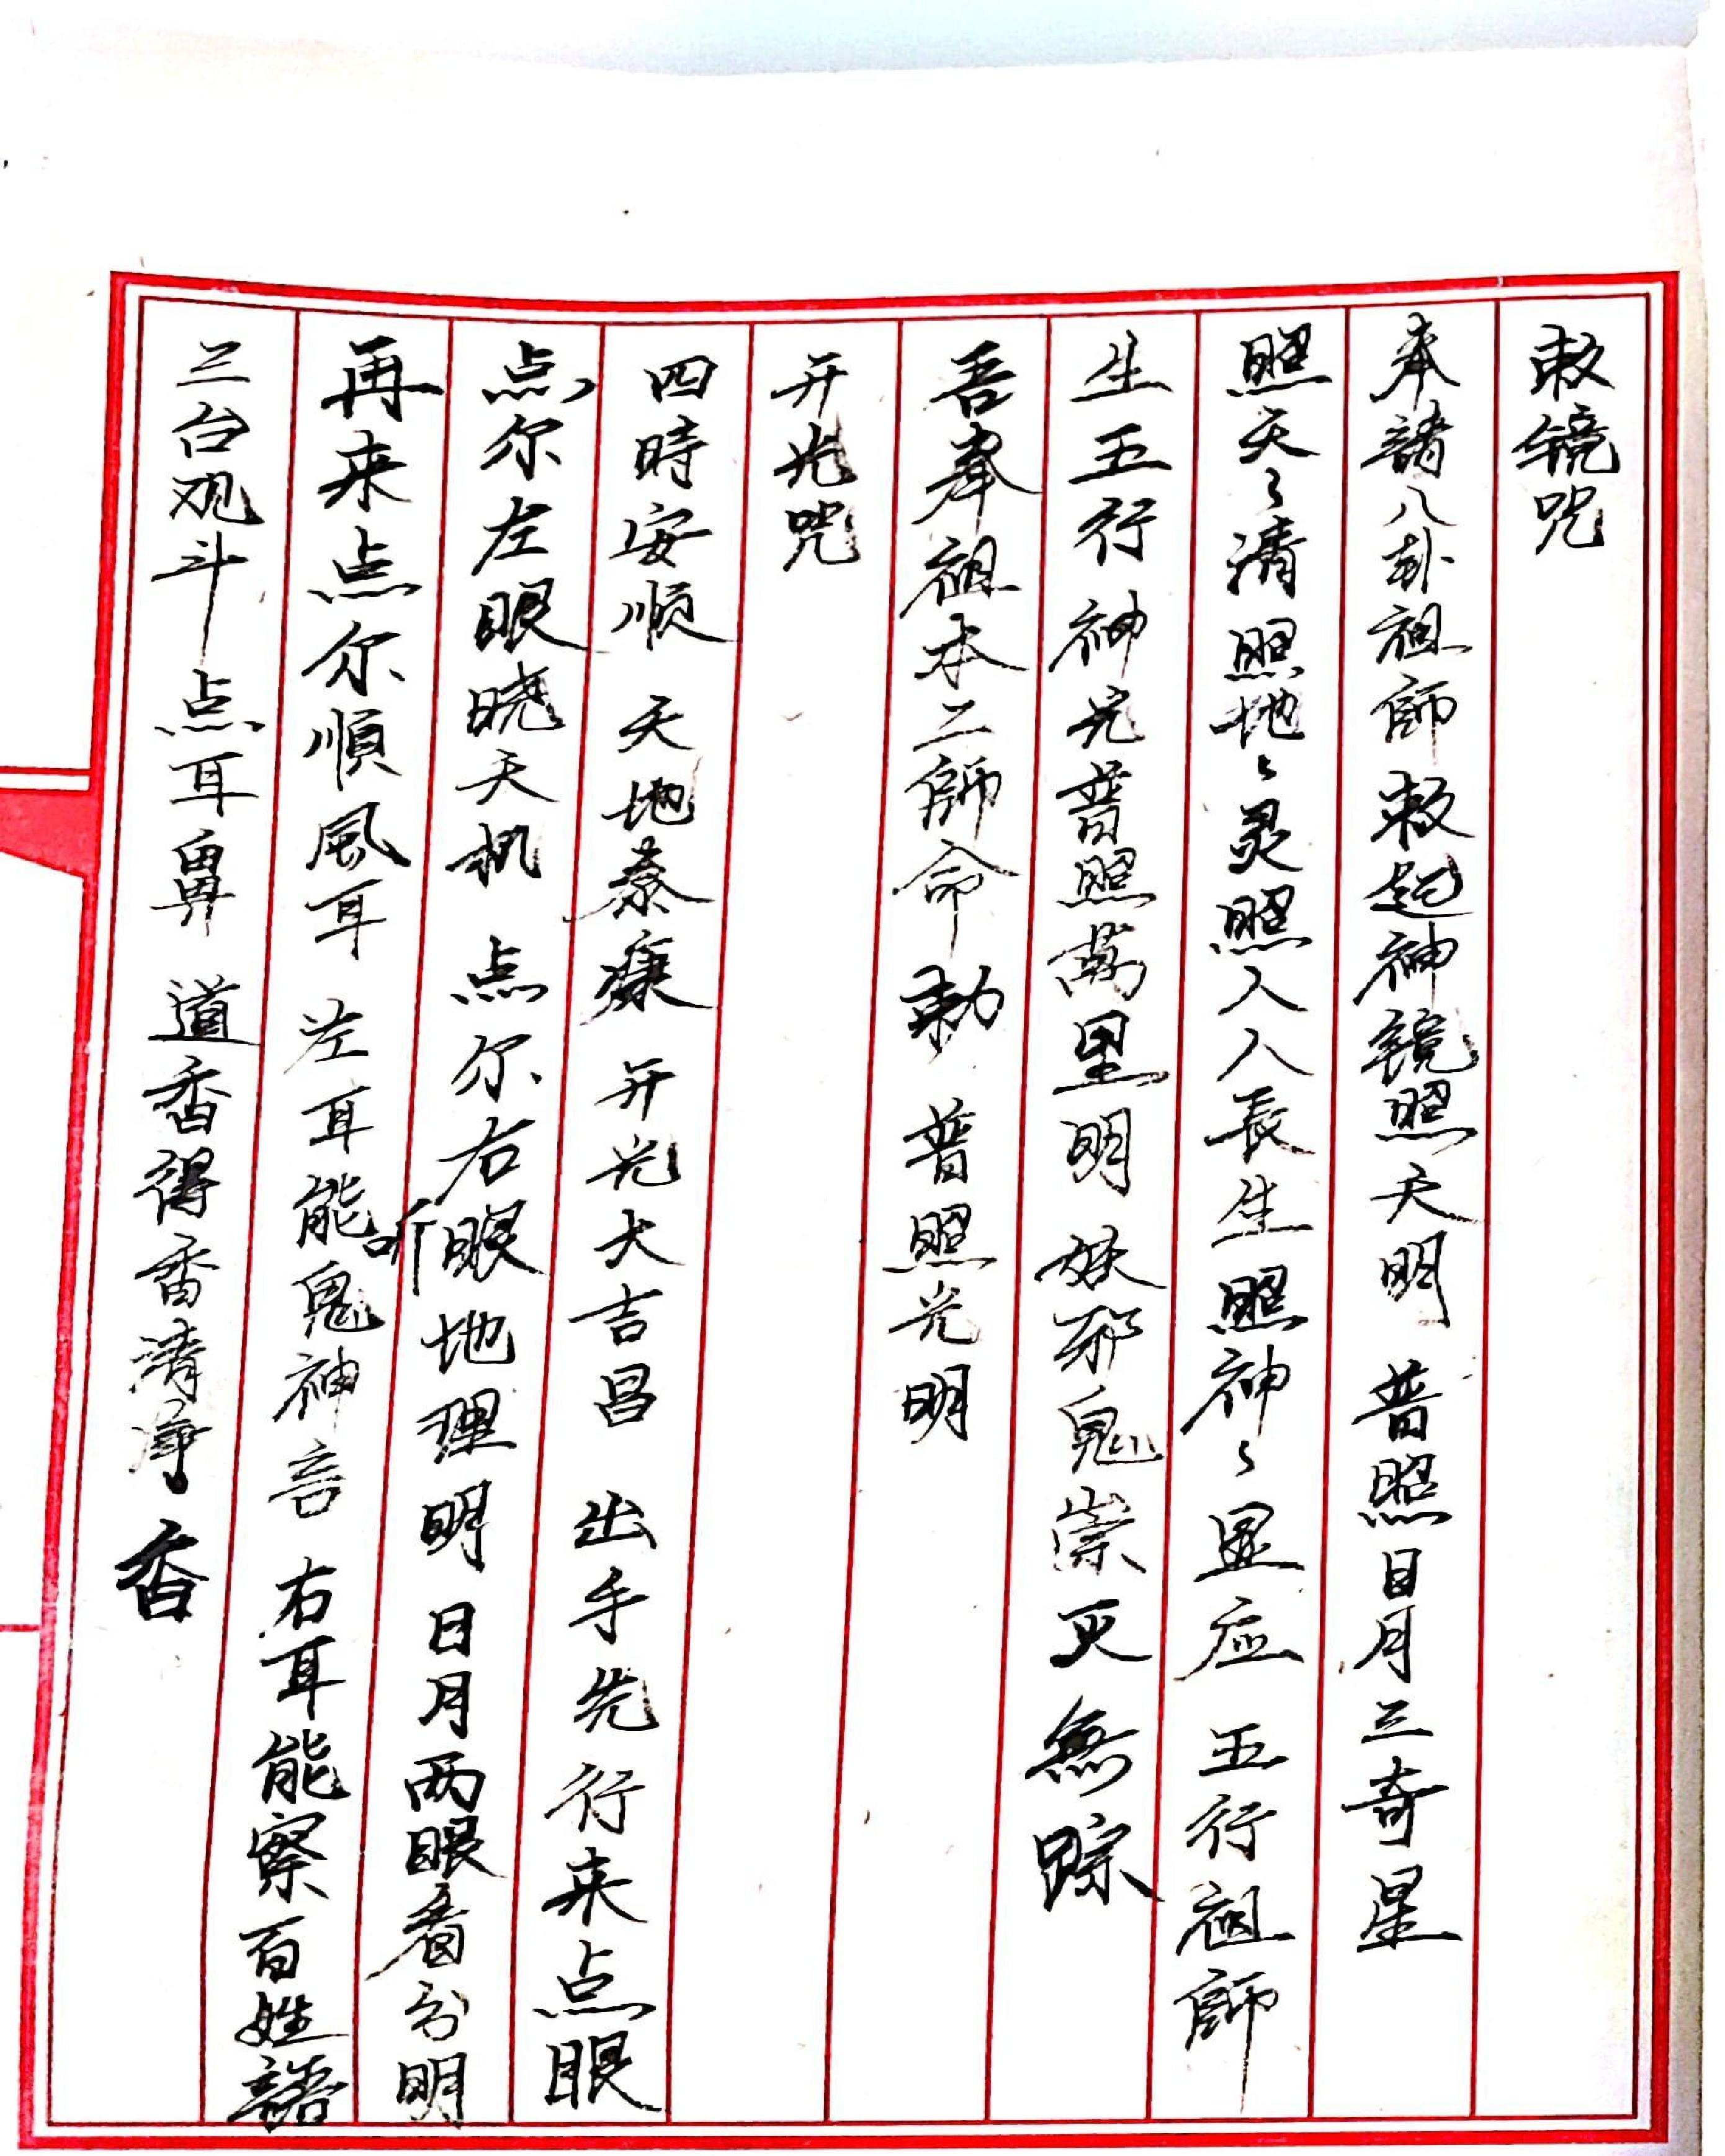 敕镜咒
奉請八卦祖師 敕起神镜照天明 普照日月三奇星
照天〻清照地〻灵照人人長生照神〻显应 五行祖師
生五行神光普照萬里明 妖邪鬼祟灭無踪
吾奉祖本二師命 勅 普照光明
开光咒
四時安順 天地泰康 开光大吉昌 出手先行来点眼
点尔左眼晓天机 点尔右眼地理明 日月两眼看分明
再来点尔順風耳 左耳能听鬼神言 右耳能察百姓語
三台观斗 点耳鼻 道香得香清净香